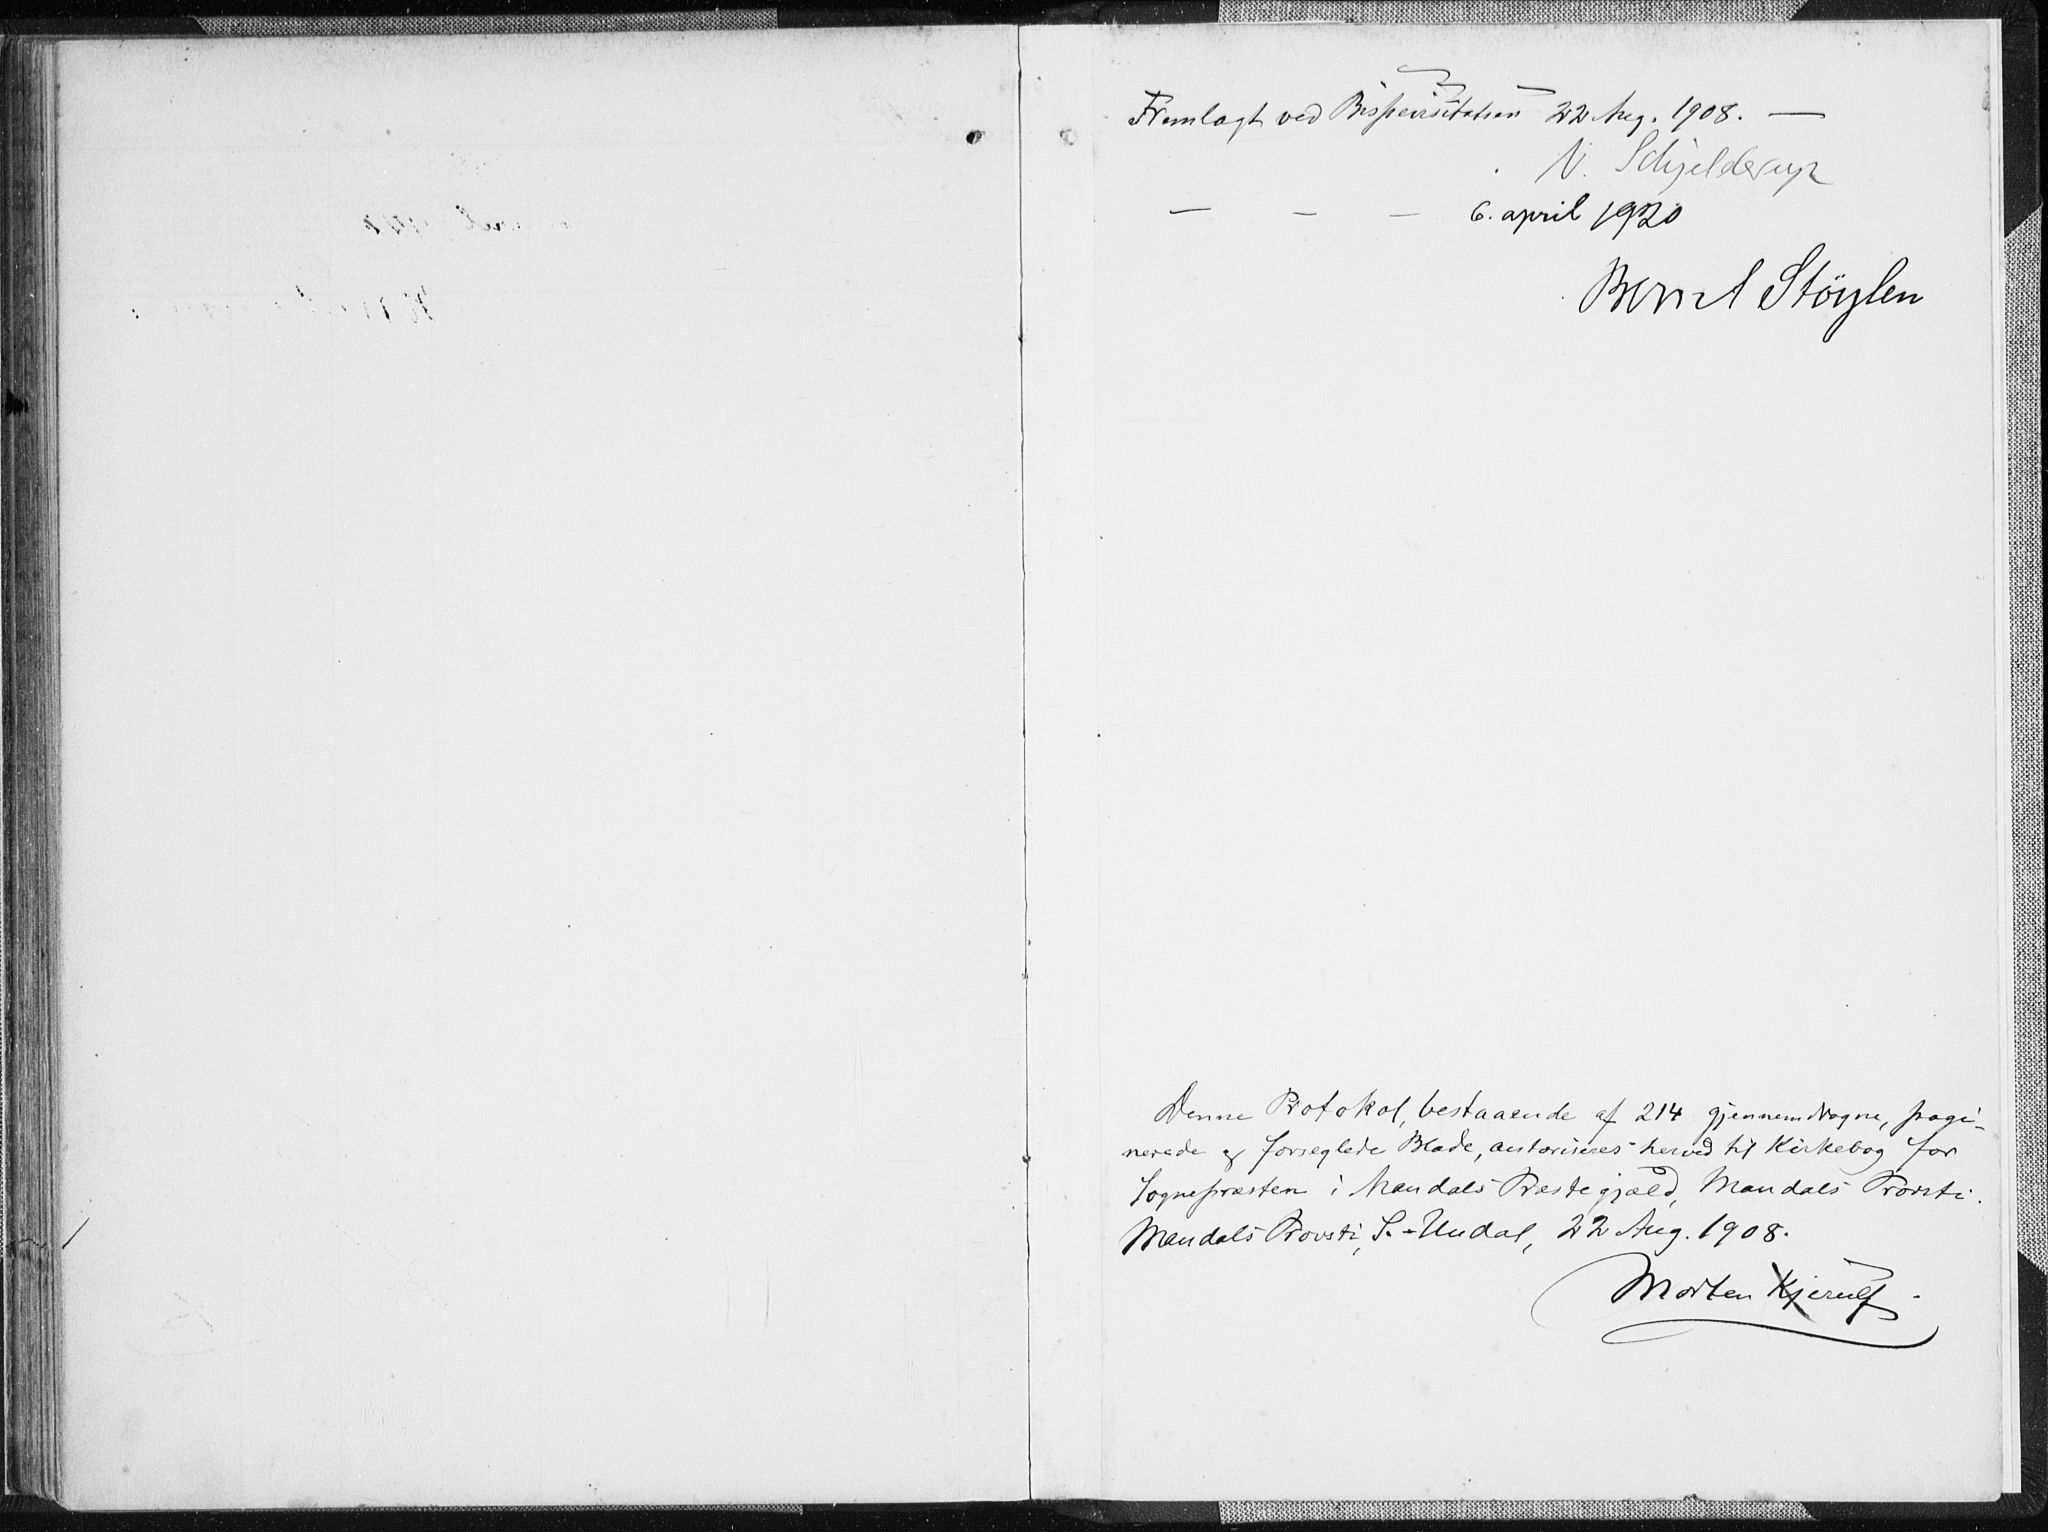 Fremlagt ved Bispevisitatsen 22 Aug. 1908. —
N. Schjelderup
— — — 6. april 1920
Bernt Støylen
Denne Protokol, bestaaende af 214 gjennemdragne, pagi-
nerede og forseglede Blade, autoriseres herved til Kirkebog for
Sognepræsten i Mandals Præstegjæld, Mandals Provsti.
Mandals Provsti, S.-Undal, 22 Aug. 1908.
Morten Kjerulf